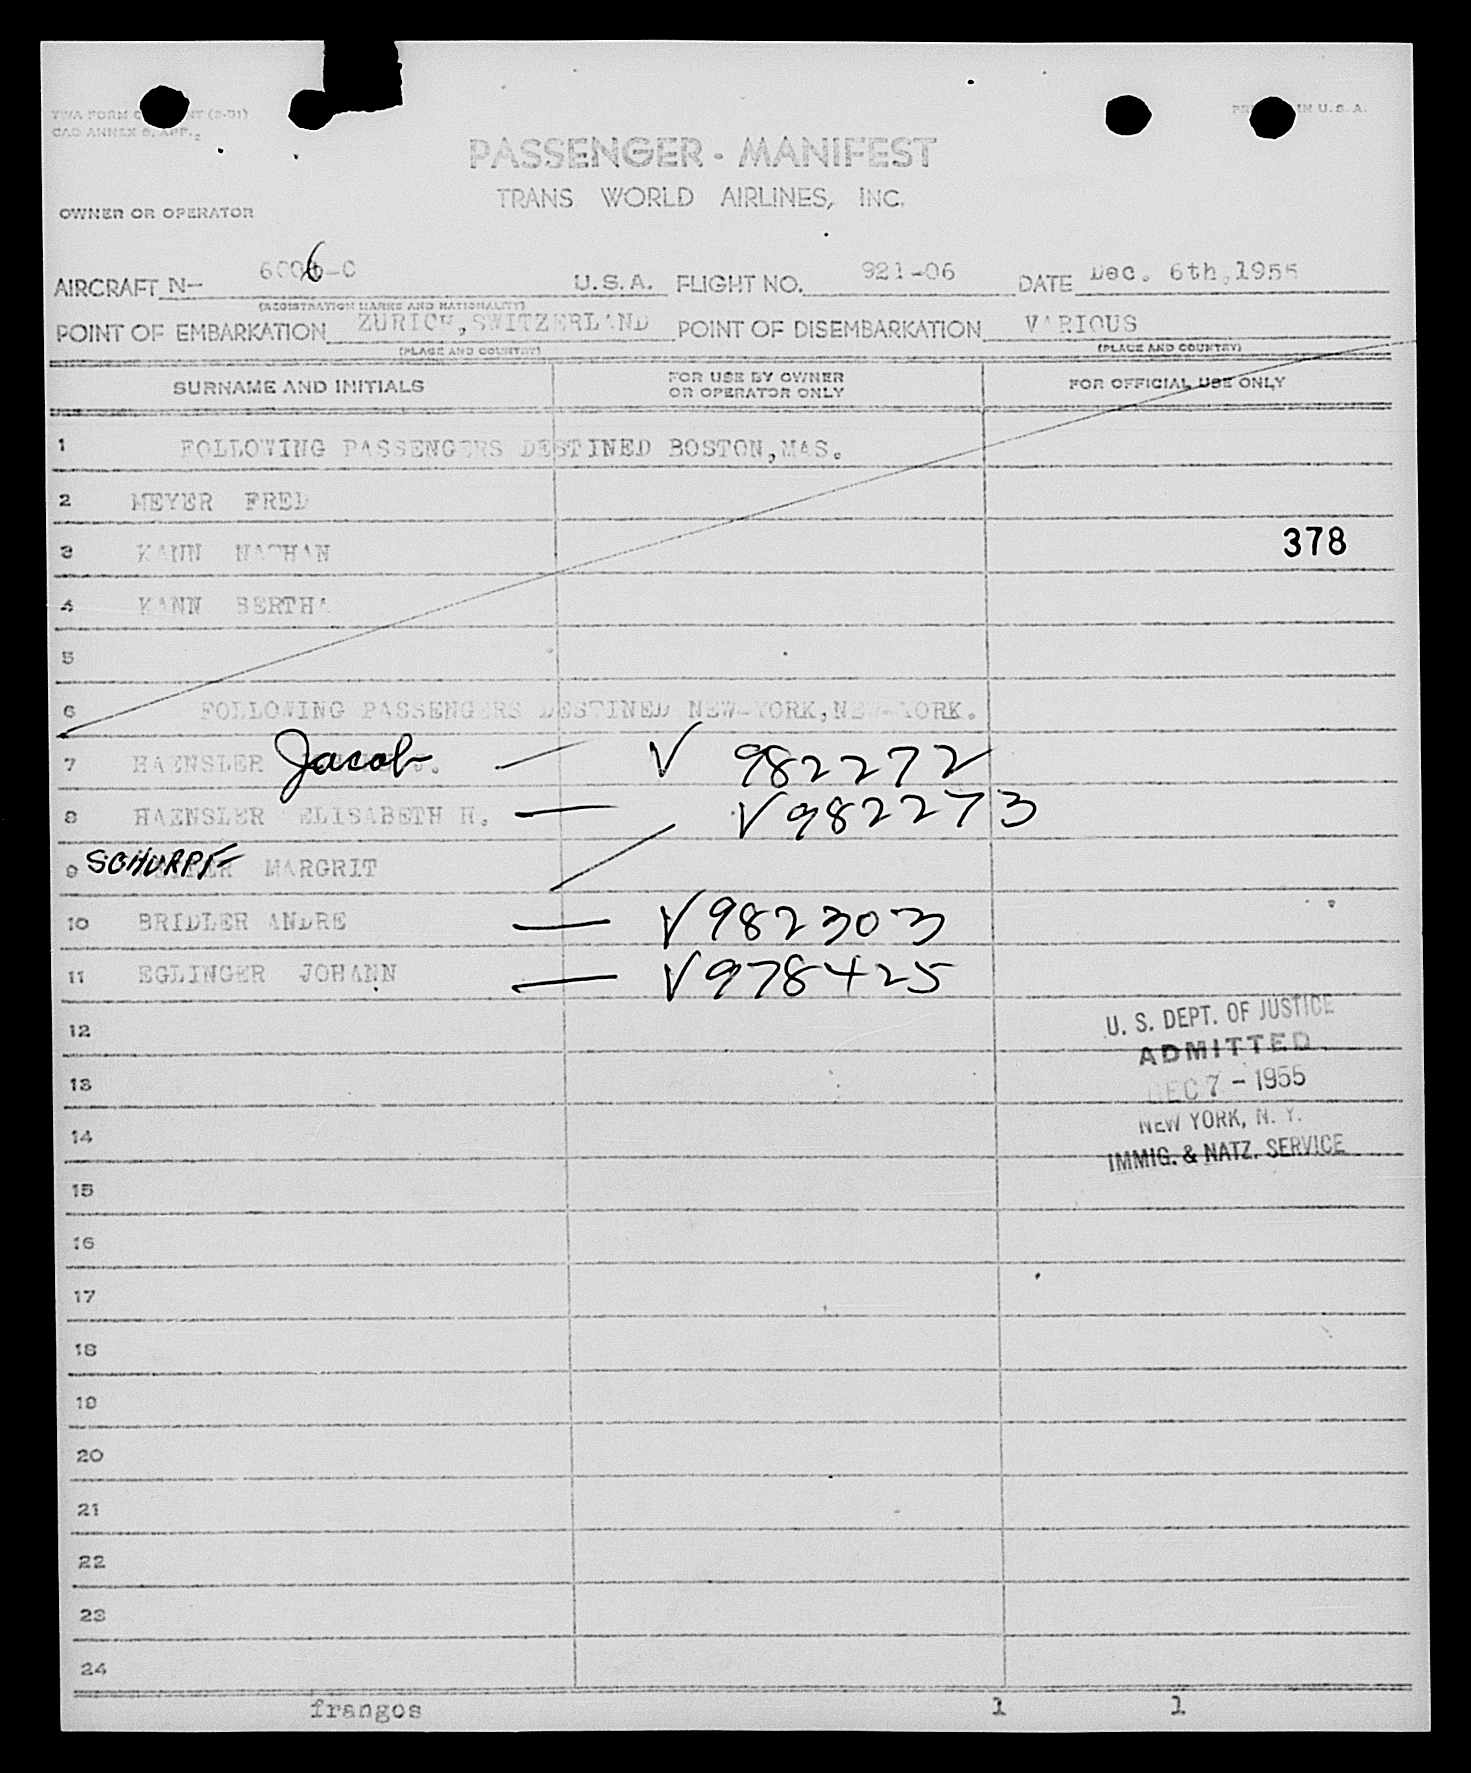 TWA FORM
CAO ANNEX 9, APP. 2
IN U. S. A.
PASSENGER - MANIFEST
TRANS WORLD AIRLINES, INC.
OWNER OR OPERATOR
AIRCRAFT N- 6006-C U.S.A. FLIGHT NO. 921-06 DATE Dec. 6th,1955
(REGISTRATION MARKS AND NATIONALITY)
POINT OF EMBARKATION ZURICH,SWITZERLAND POINT OF DISEMBARKATION VARIOUS
(PLACE AND COUNTRY) (PLACE AND COUNTRY)
SURNAME AND INITIALS FOR USE BY OWNER OR OPERATOR ONLY FOR OFFICIAL USE ONLY
1 FOLLOWING PASSENGERS DESTINED BOSTON,MAS.
2 MEYER FRED
3 KANN NATHAN 378
4 KANN BERTHA
5
6 FOLLOWING PASSENGERS DESTINED NEW-YORK,NEW-YORK.
7 HAENSLER Jacob J. — √ 982272
8 HAENSLER ELISABETH H. — √ 982273
9 SCHURPF MARGRIT
10 BRIDLER ANDRE — √ 982303
11 EGLINGER JOHANN — √ 978425
12
13
14
15
16
17
18
19
20
21
22
23
24
U. S. DEPT. OF JUSTICE
ADMITTED
DEC 7 - 1955
NEW YORK, N. Y.
IMMIG. & NATZ. SERVICE
frangos 1 1